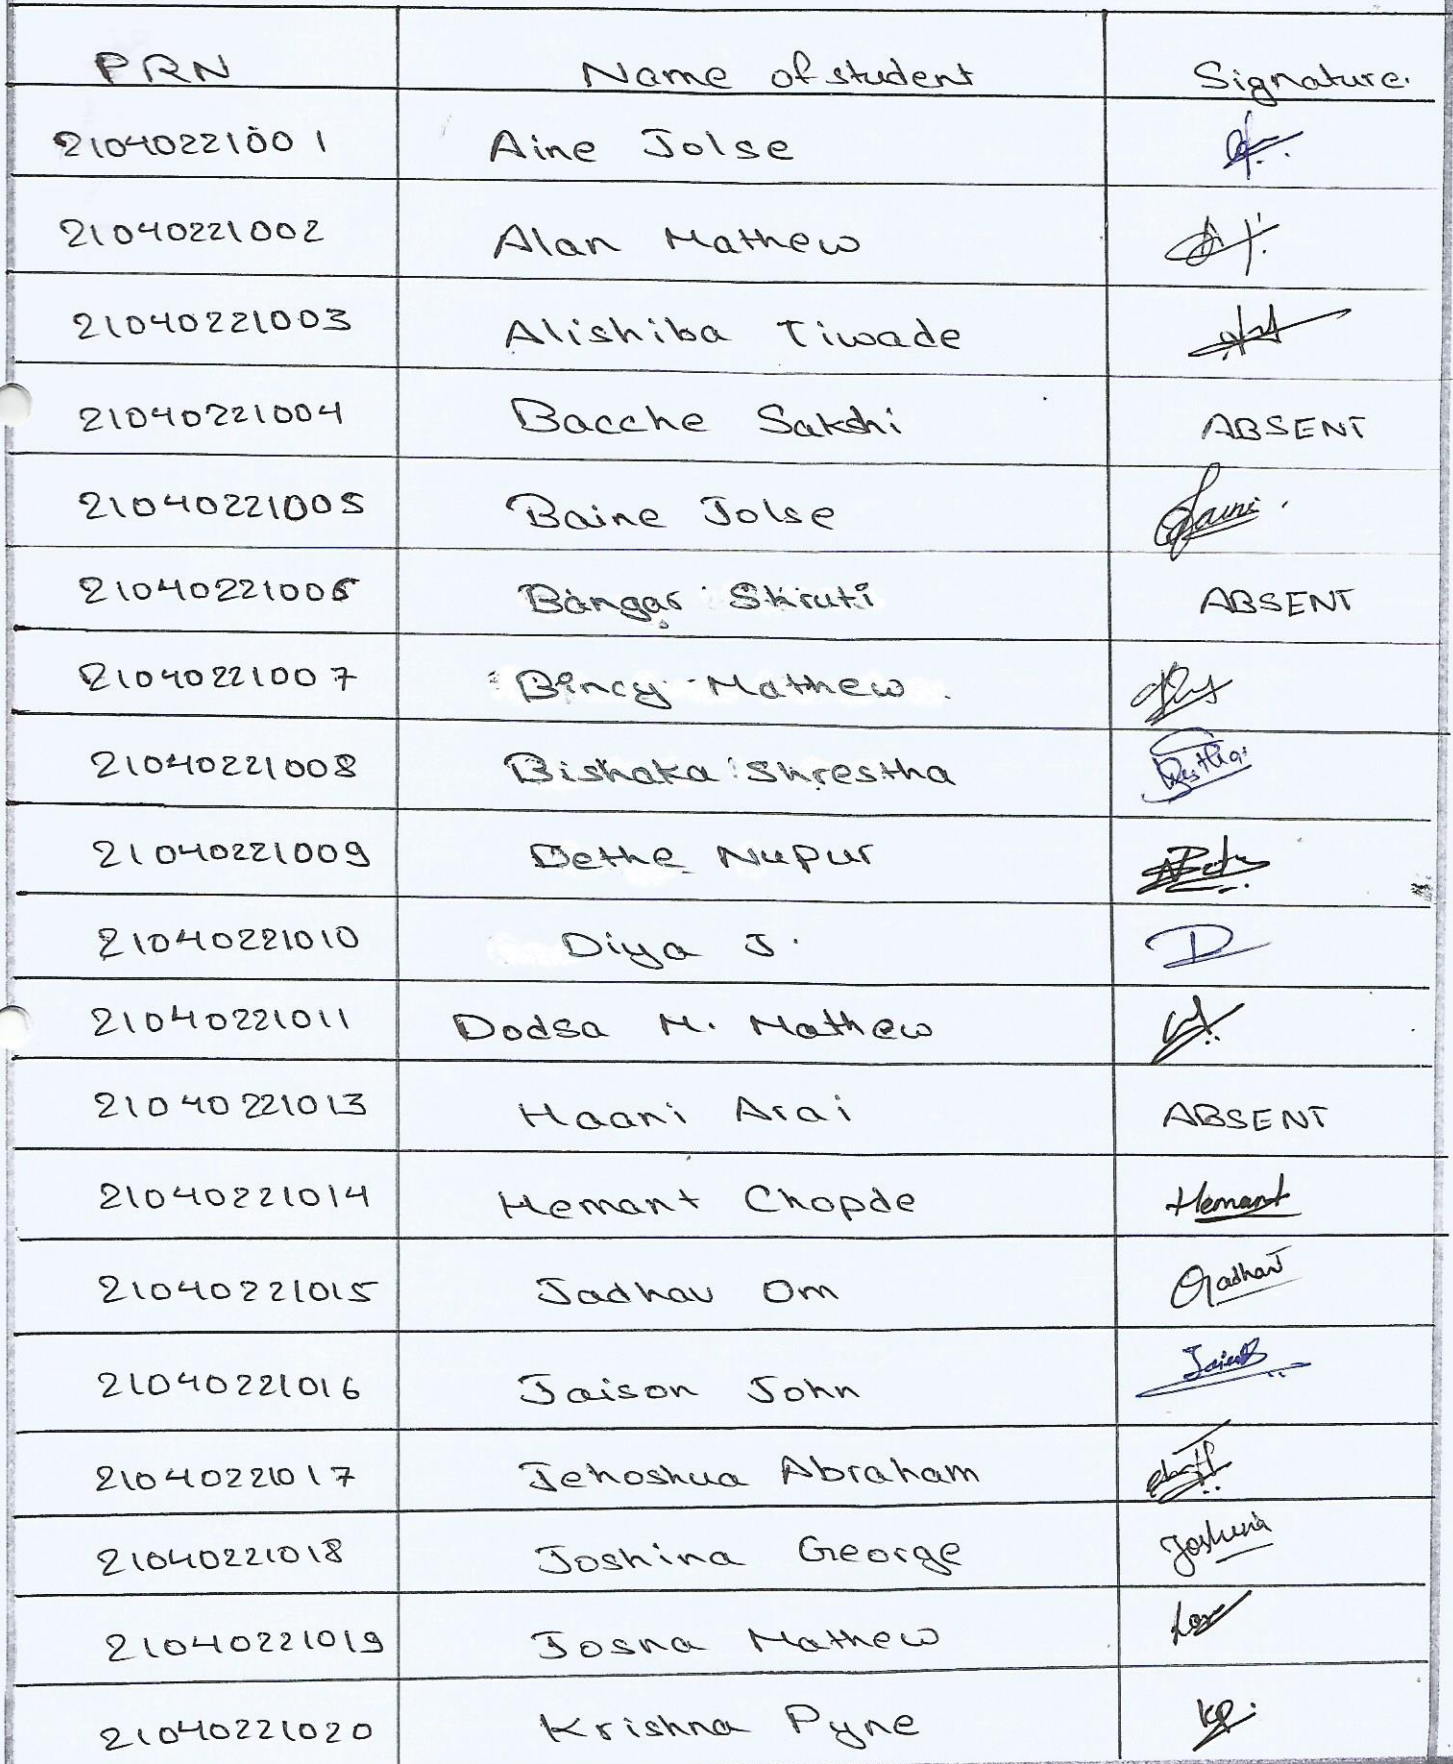 PRN Name of student Signature.
21040221001 Aine Jolse
21040221002 Alan Mathew
21040221003 Alishiba Tiwade
21040221004 Bacche Sakshi ABSENT
21040221005 Baine Jolse
21040221006 Bangar Shruti ABSENT
21040221007 Bincy Mathew
21040221008 Bishaka Shrestha
21040221009 Dethe Nupur
21040221010 Diya J. D
21040221011 Dodsa M. Mathew
21040221013 Haani Arai ABSENT
21040221014 Hemant Chopde Hemant
21040221015 Jadhav Om
21040221016 Jaison John
21040221017 Jehoshua Abraham
21040221018 Joshina George
21040221019 Josna Mathew
21040221020 Krishna Pyne KP.